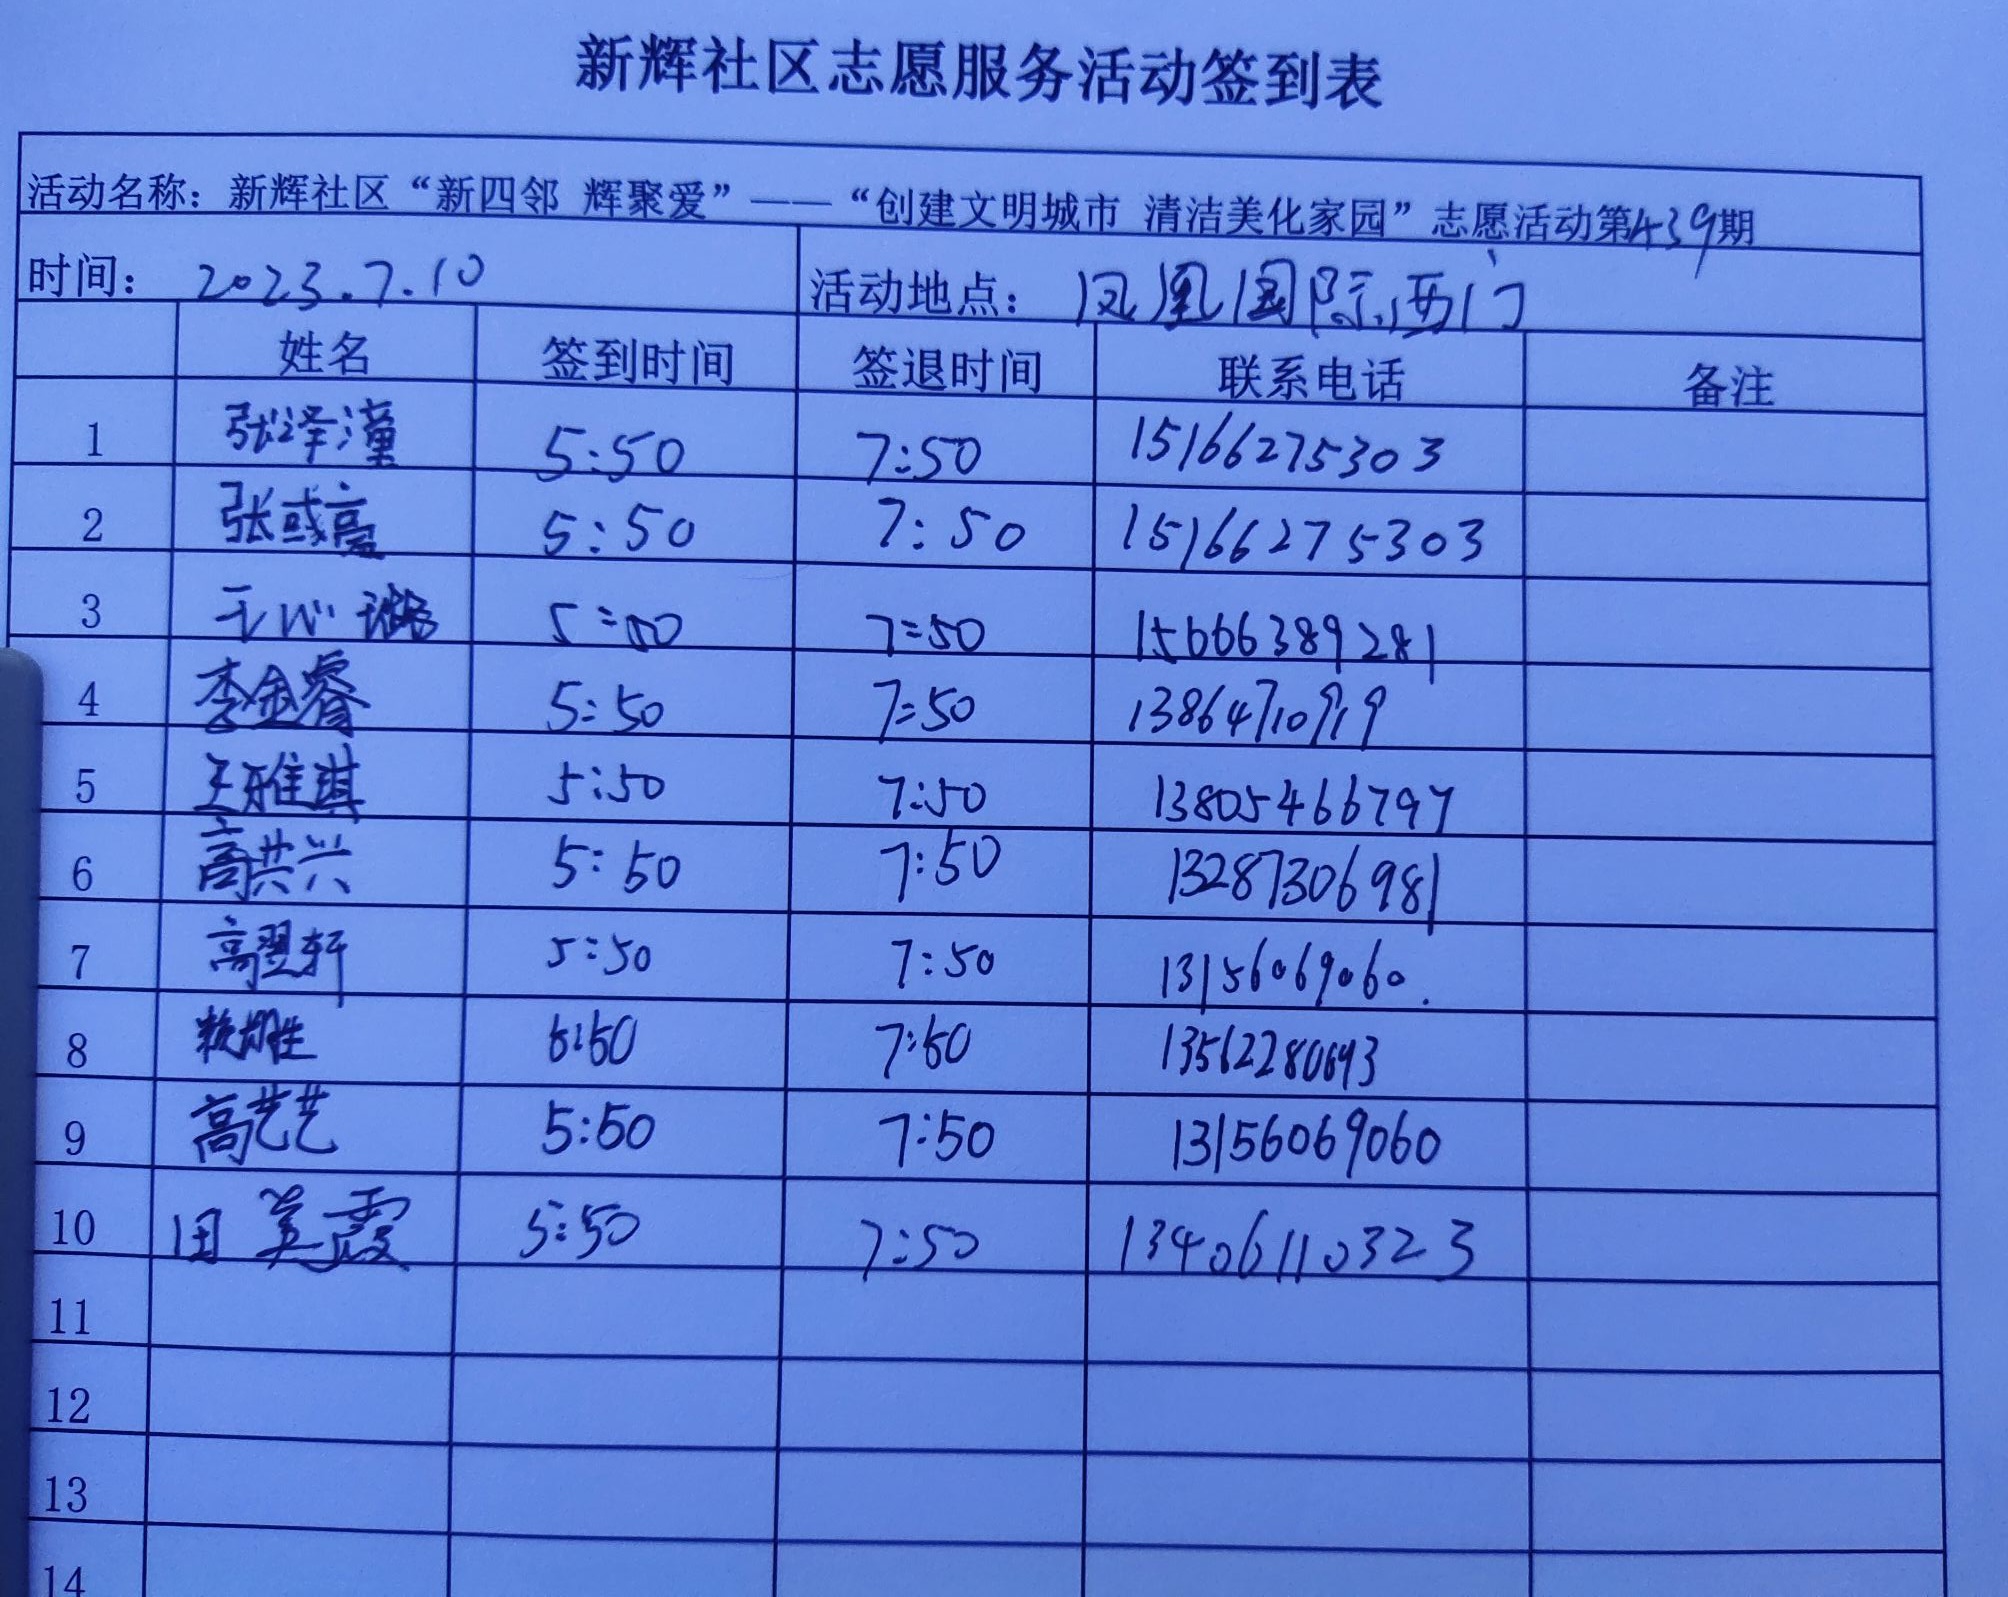 新辉社区志愿服务活动签到表
活动名称：新辉社区“新四邻 辉聚爱”——“创建文明城市 清洁美化家园”志愿活动第439期
时间： 2023.7.10 活动地点： 凤凰国际西门
姓名 签到时间 签退时间 联系电话 备注
1 张泽潼 5:50 7:50 15166275303
2 张彧高 5:50 7:50 15166275303
3 5:50 7:50 15666389281
4 李金睿 5:50 7:50 13864710919
5 王雅琪 5:50 7:50 13805466797
6 高洪兴 5:50 7:50 13287306981
7 高翌轩 5:50 7:50 13156069060.
8 5:50 7:50 13562280693
9 高艺艺 5:50 7:50 13156069060
10 田美霞 5:50 7:50 13406110323
11
12
13
14